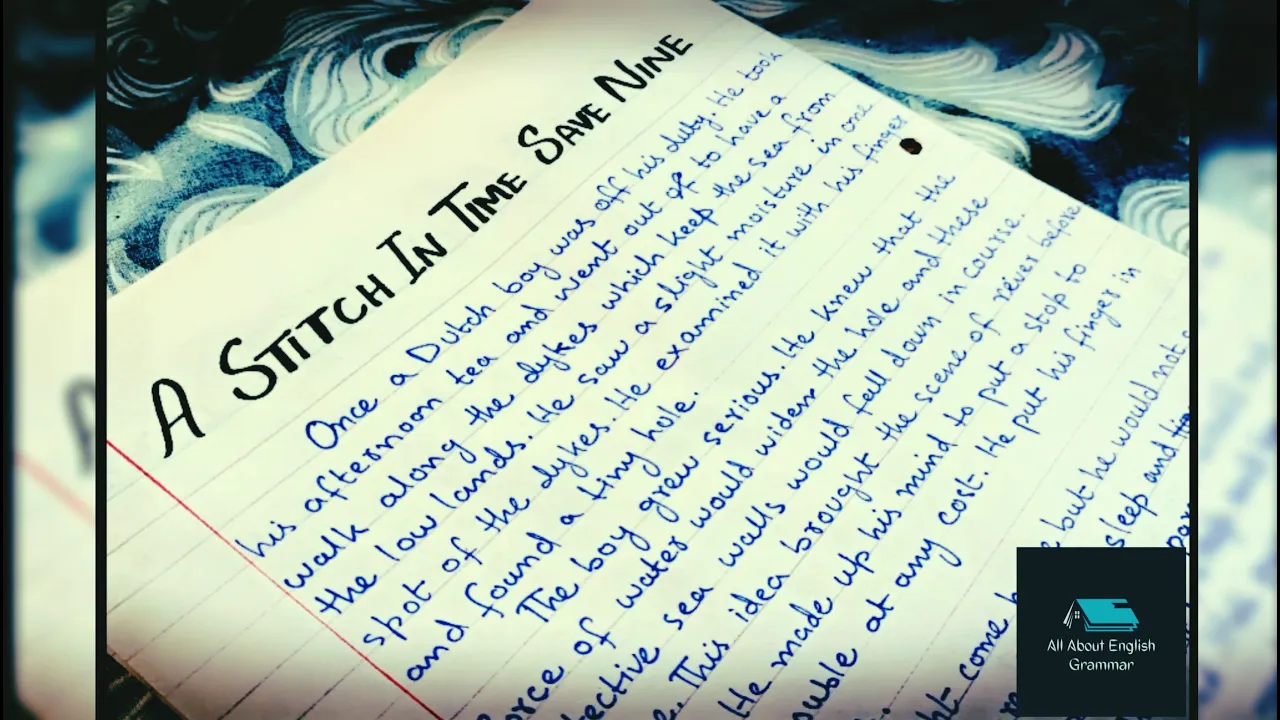 A STITCH IN TIME SAVE NINE
Once a Dutch boy was off his duty. He took
his afternoon tea and went out of to have a
walk along the dykes which keep the sea from
the low lands. He saw a slight moisture in one
spot of the dykes. He examined it with his finger
and found a tiny hole.
The boy grew serious. He knew that the
of water would widen the hole and these
sea walls would fall down in course.
This idea brought the scene of never before
He made up his mind to put a stop to
at any cost. He put his finger in
but he would not
come
sleep and
All About English
Grammar